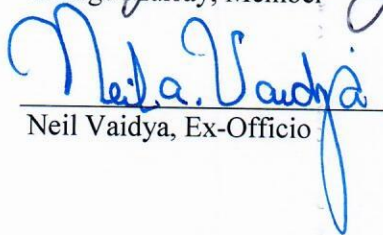 Member
Neil A. Vaidya
Neil Vaidya, Ex-Officio